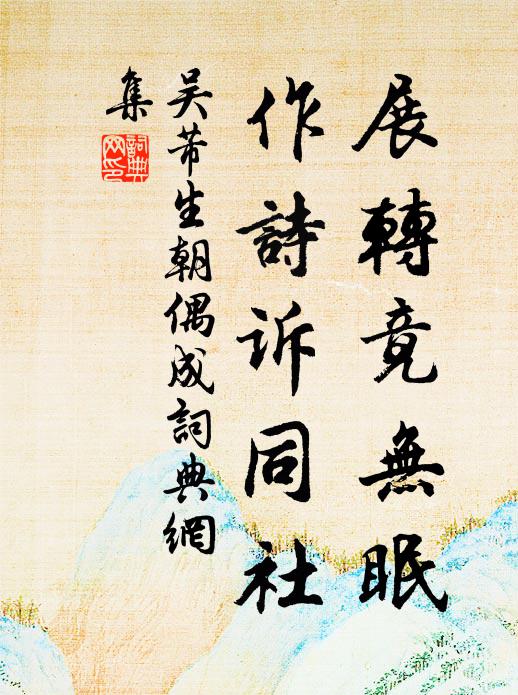 展轉竟無眠
作詩诉同社
吴芾生朝偶成詞典網
集
詞典网印